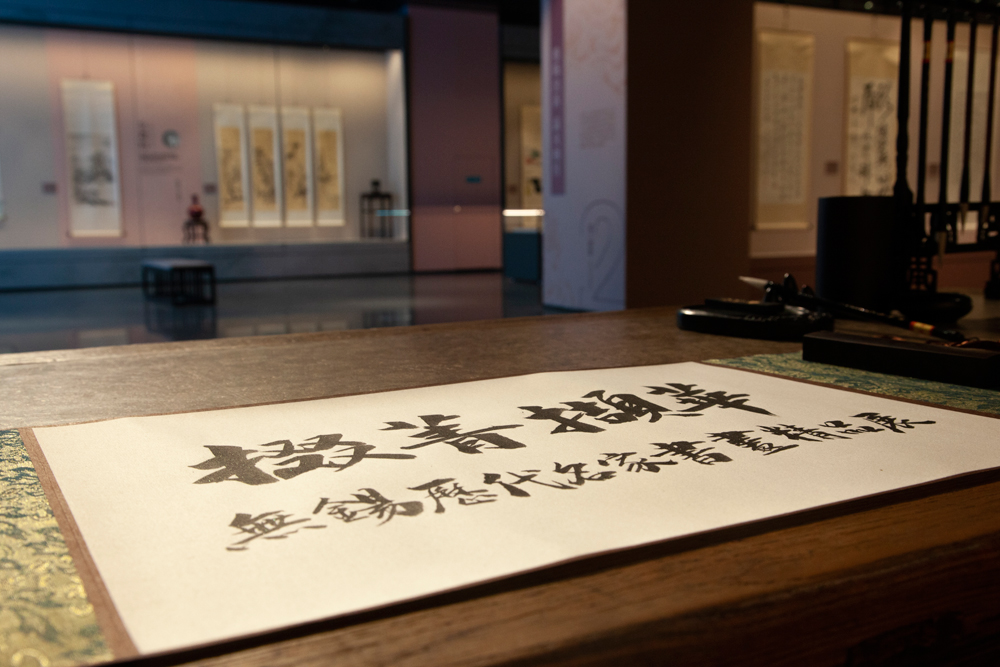 掇菁擷華
無錫歷代名家書畫精品展